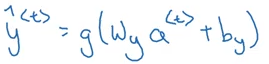 ŷ<t> = g(W_y a<t> + b_y)